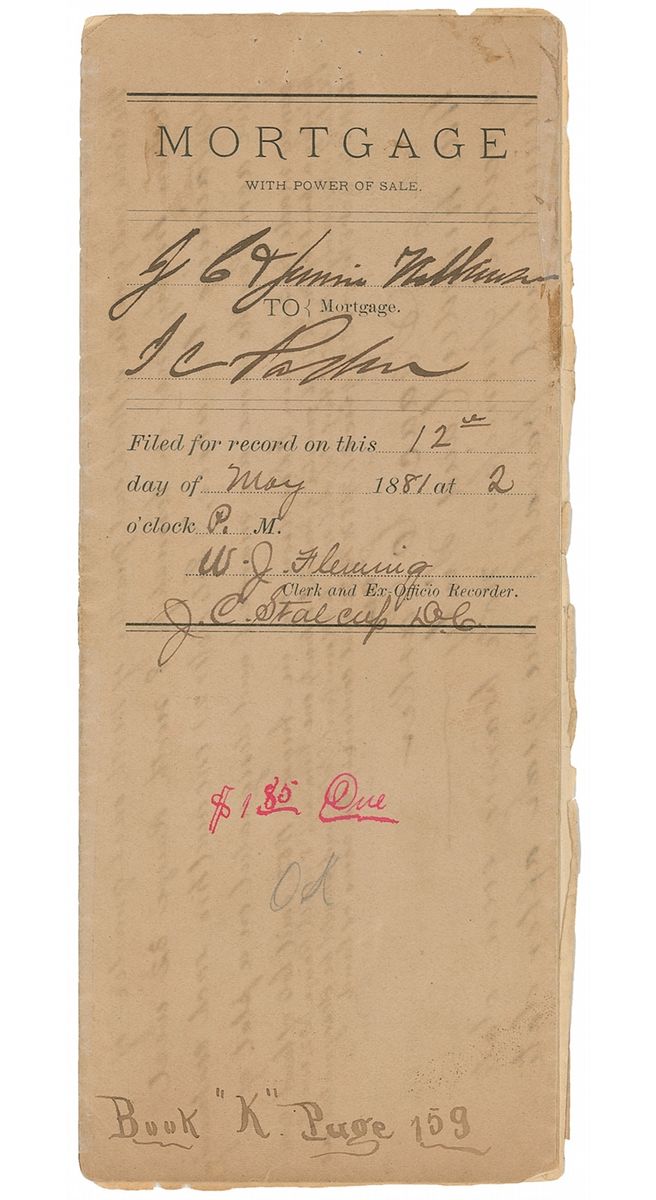 MORTGAGE
WITH POWER OF SALE.
J C & Jennie
TO { Mortgage.
I C Parker
Filed for record on this 12th
day of May 1881 at 2
o'clock P. M.
W. J. Fleming
Clerk and Ex-Officio Recorder.
J. C. Stalcup D.C.
$1 85 Due
OK
Book "K" Page 159